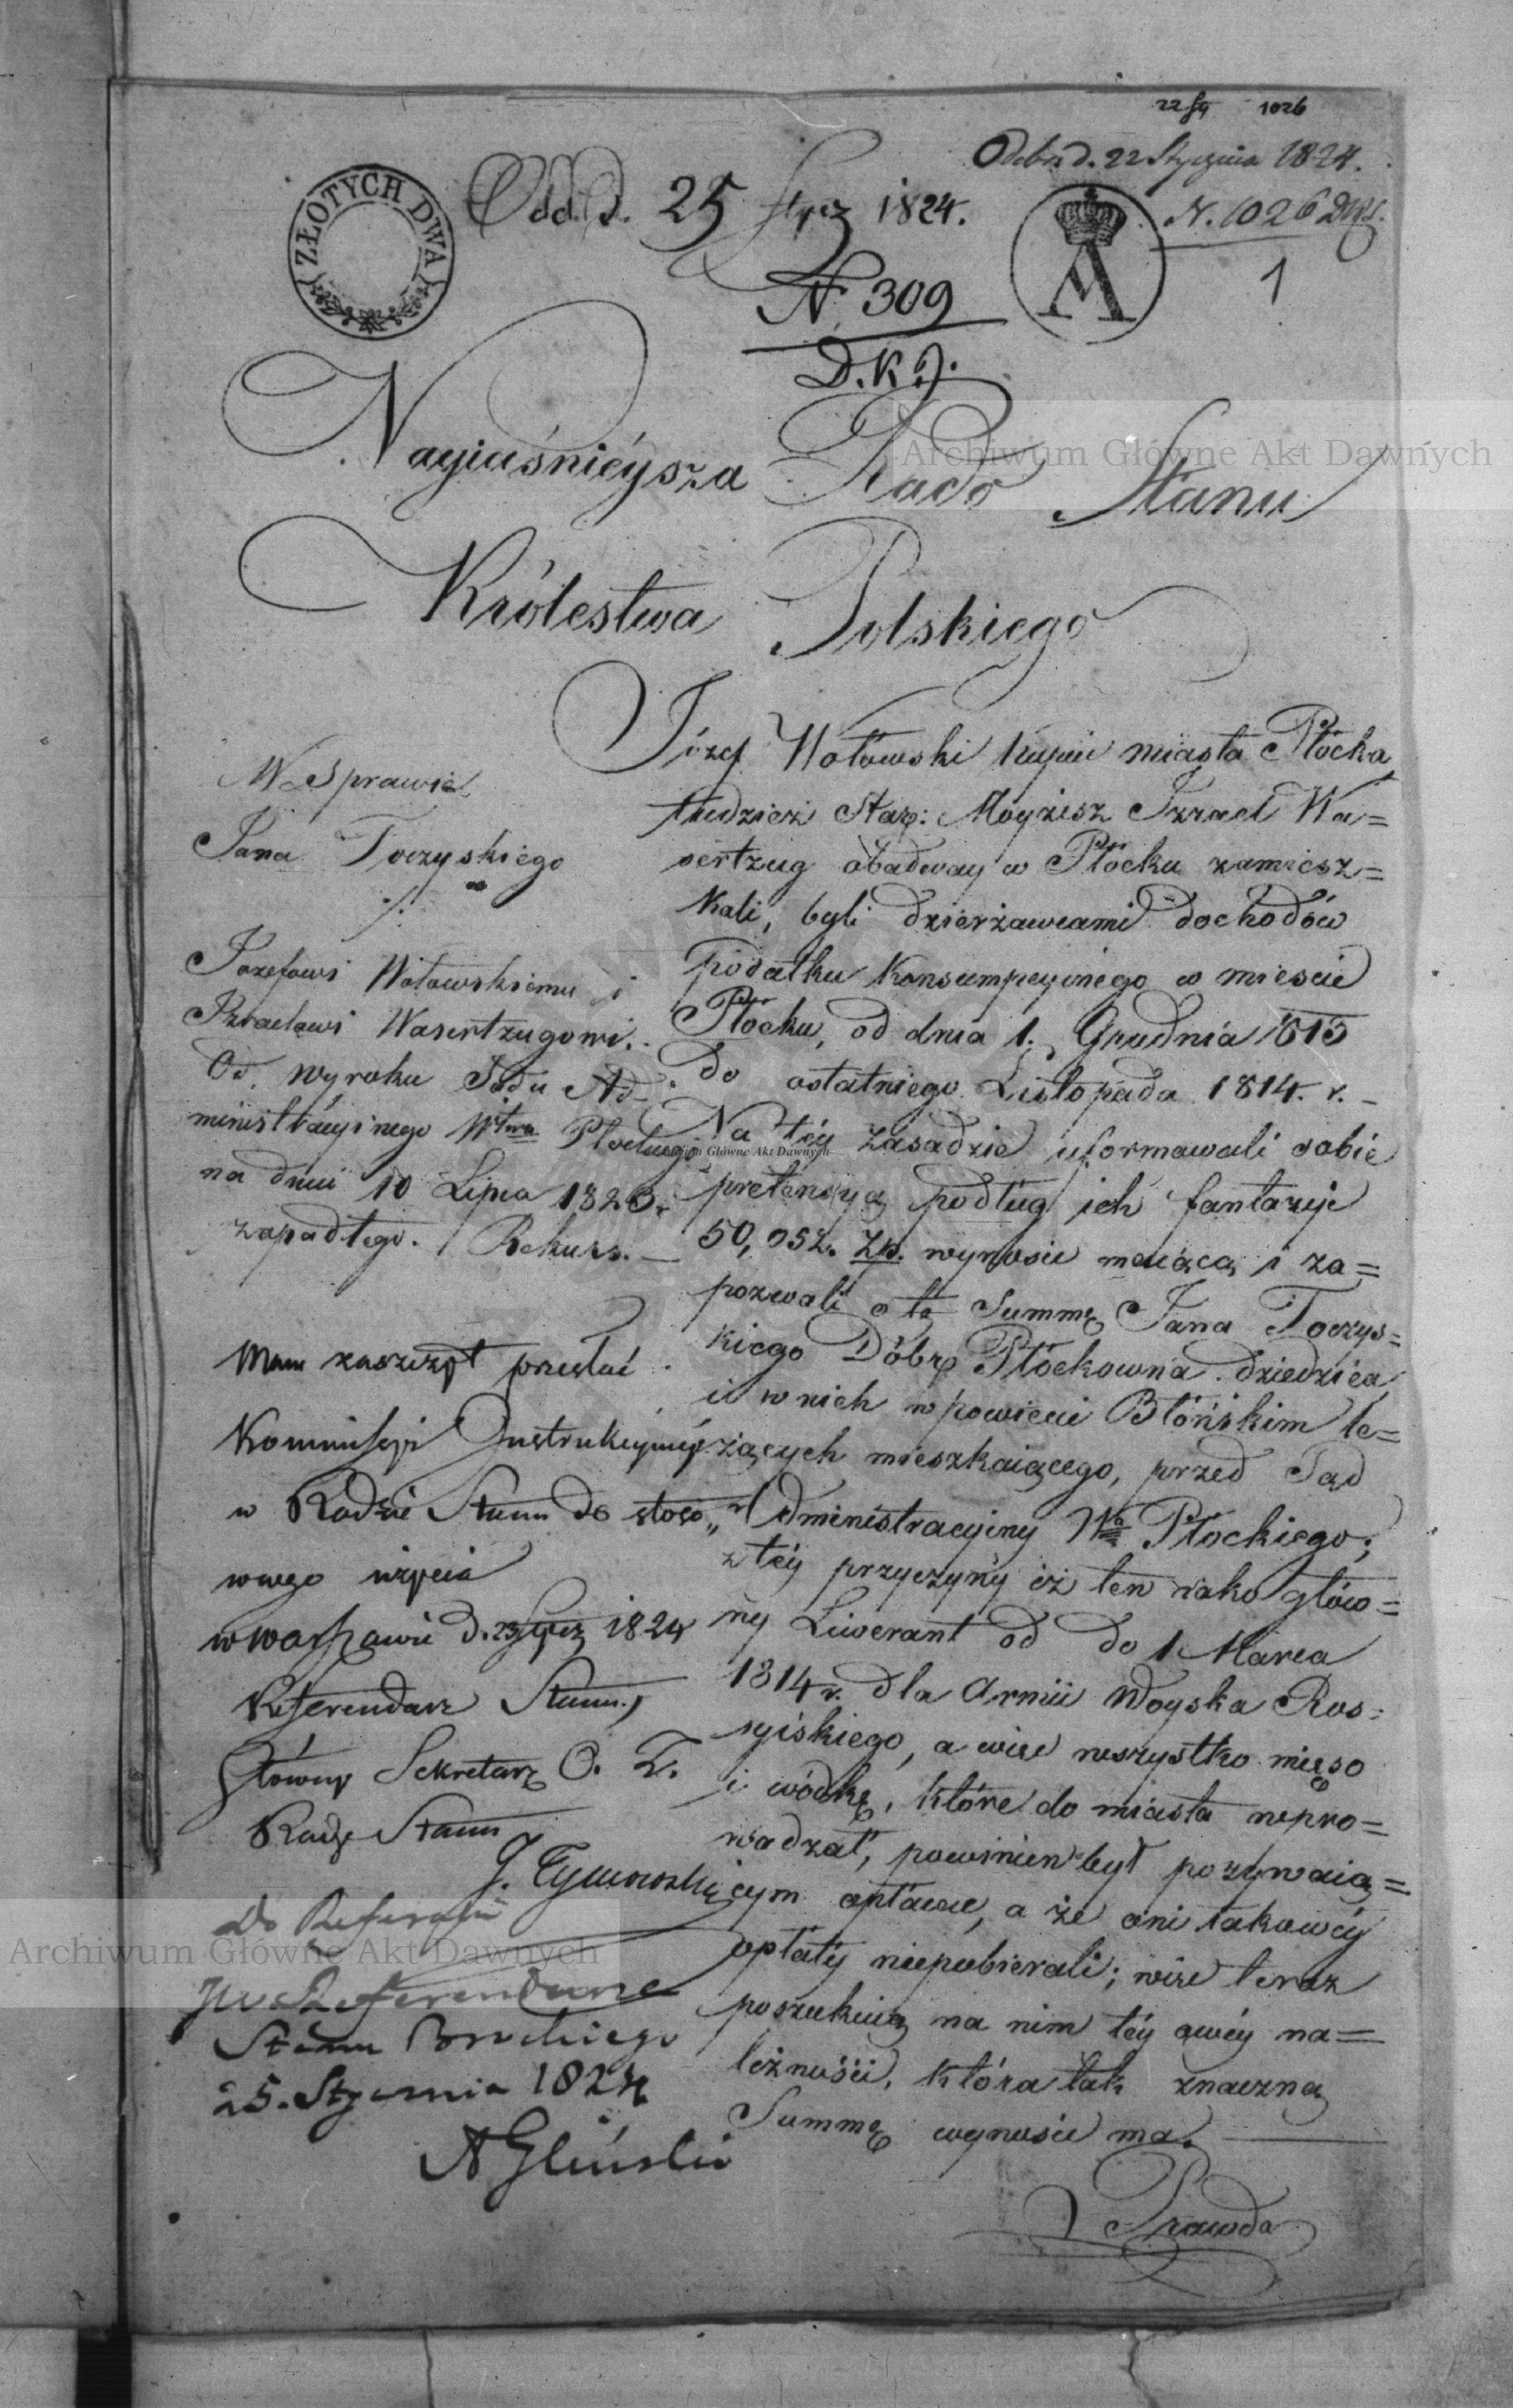 22 1026
Odebr. d. 22 Stycznia 1824.
N. 1026
1
ZŁOTYCH DWA
Odd. d. 25 Stycz 1824.
N. 309
D.K.J.
A
Nayiaśnieysza Rado Stanu
Królestwa Polskiego
W Sprawie
Jana Toczyskiego
./.
Jozefowi Wołowskiemu i
Izraelowi Wasertzugowi.
Od wyroku Sądu Ad-
ministracyinego Wtwa Płockiego
na dniu 10 Lipca 1823 r.
zapadłego. Rekurs. —
Józef Wołowski kupiec miasta Płocka
tudzież Star: Moyżesz Izrael Wa=
sertzug obadway w Płocku zamiesz=
kali, byli dzierżawcami dochodów
podatku konsumpcyinego w mieście
Płocku, od dnia 1. Grudnia 1813
do ostatniego Listopada 1814. r. —
Na téy zasadzie uformowali sobie
pretensyą podług ich fantazyi
50,052. Zp. wynosić maiącą i za=
pozwali o tę Summę Jana Toczys=
kiego Dóbr Płóckowna dziedzica
i w nich w powiecie Błońskim le=
żących mieszkaiącego, przed Sąd
Administracyiny Wa Płockiego;
z téy przyczyny iż ten iako głów=
ny Liwerant od do 1 Marca
1814 r. dla Armii Woyska Ros=
syiskiego, a więc wszystko mięso
i wódkę, które do miasta wpro=
wadzał, powinien był pozywaią=
cym opłacać, a że oni takowéy
opłaty niepobierali; więc teraz
poszukuią na nim téy owéy na=
leżności, która tak znaczną
Summę wynosić ma. —
Prawda
Mam zaszczyt przesłać
Kommisyi Instrukcyiney
w Radzie Stanu do stoso„
wnego użycia
w Warszawie d. 23 Stycz 1824
Referendarz Stanu,
Główny Sekretarz O. Z.
Rady Stanu
J. Tymowski
Do Referatu
JW Referendarza
Stanu
25. Stycznia 1824
A Gliński
Archiwum Główne Akt Dawnych
Archiwum Główne Akt Dawnych
Archiwum Główne Akt Dawnych